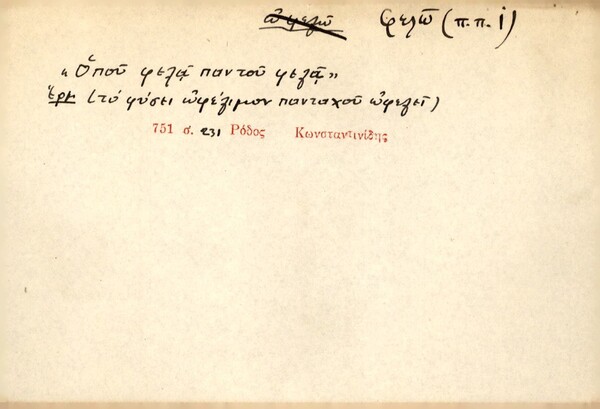 ὠφελῶ φελῶ (π.π. 1)
«Ὅπου φελᾷ παντοῦ φελᾷ»
Ἑρμ (τό φύσει ὠφέλιμον πανταχοῦ ὠφελεῖ)
751 σ. 231 Ρόδος Κωνσταντινίδης